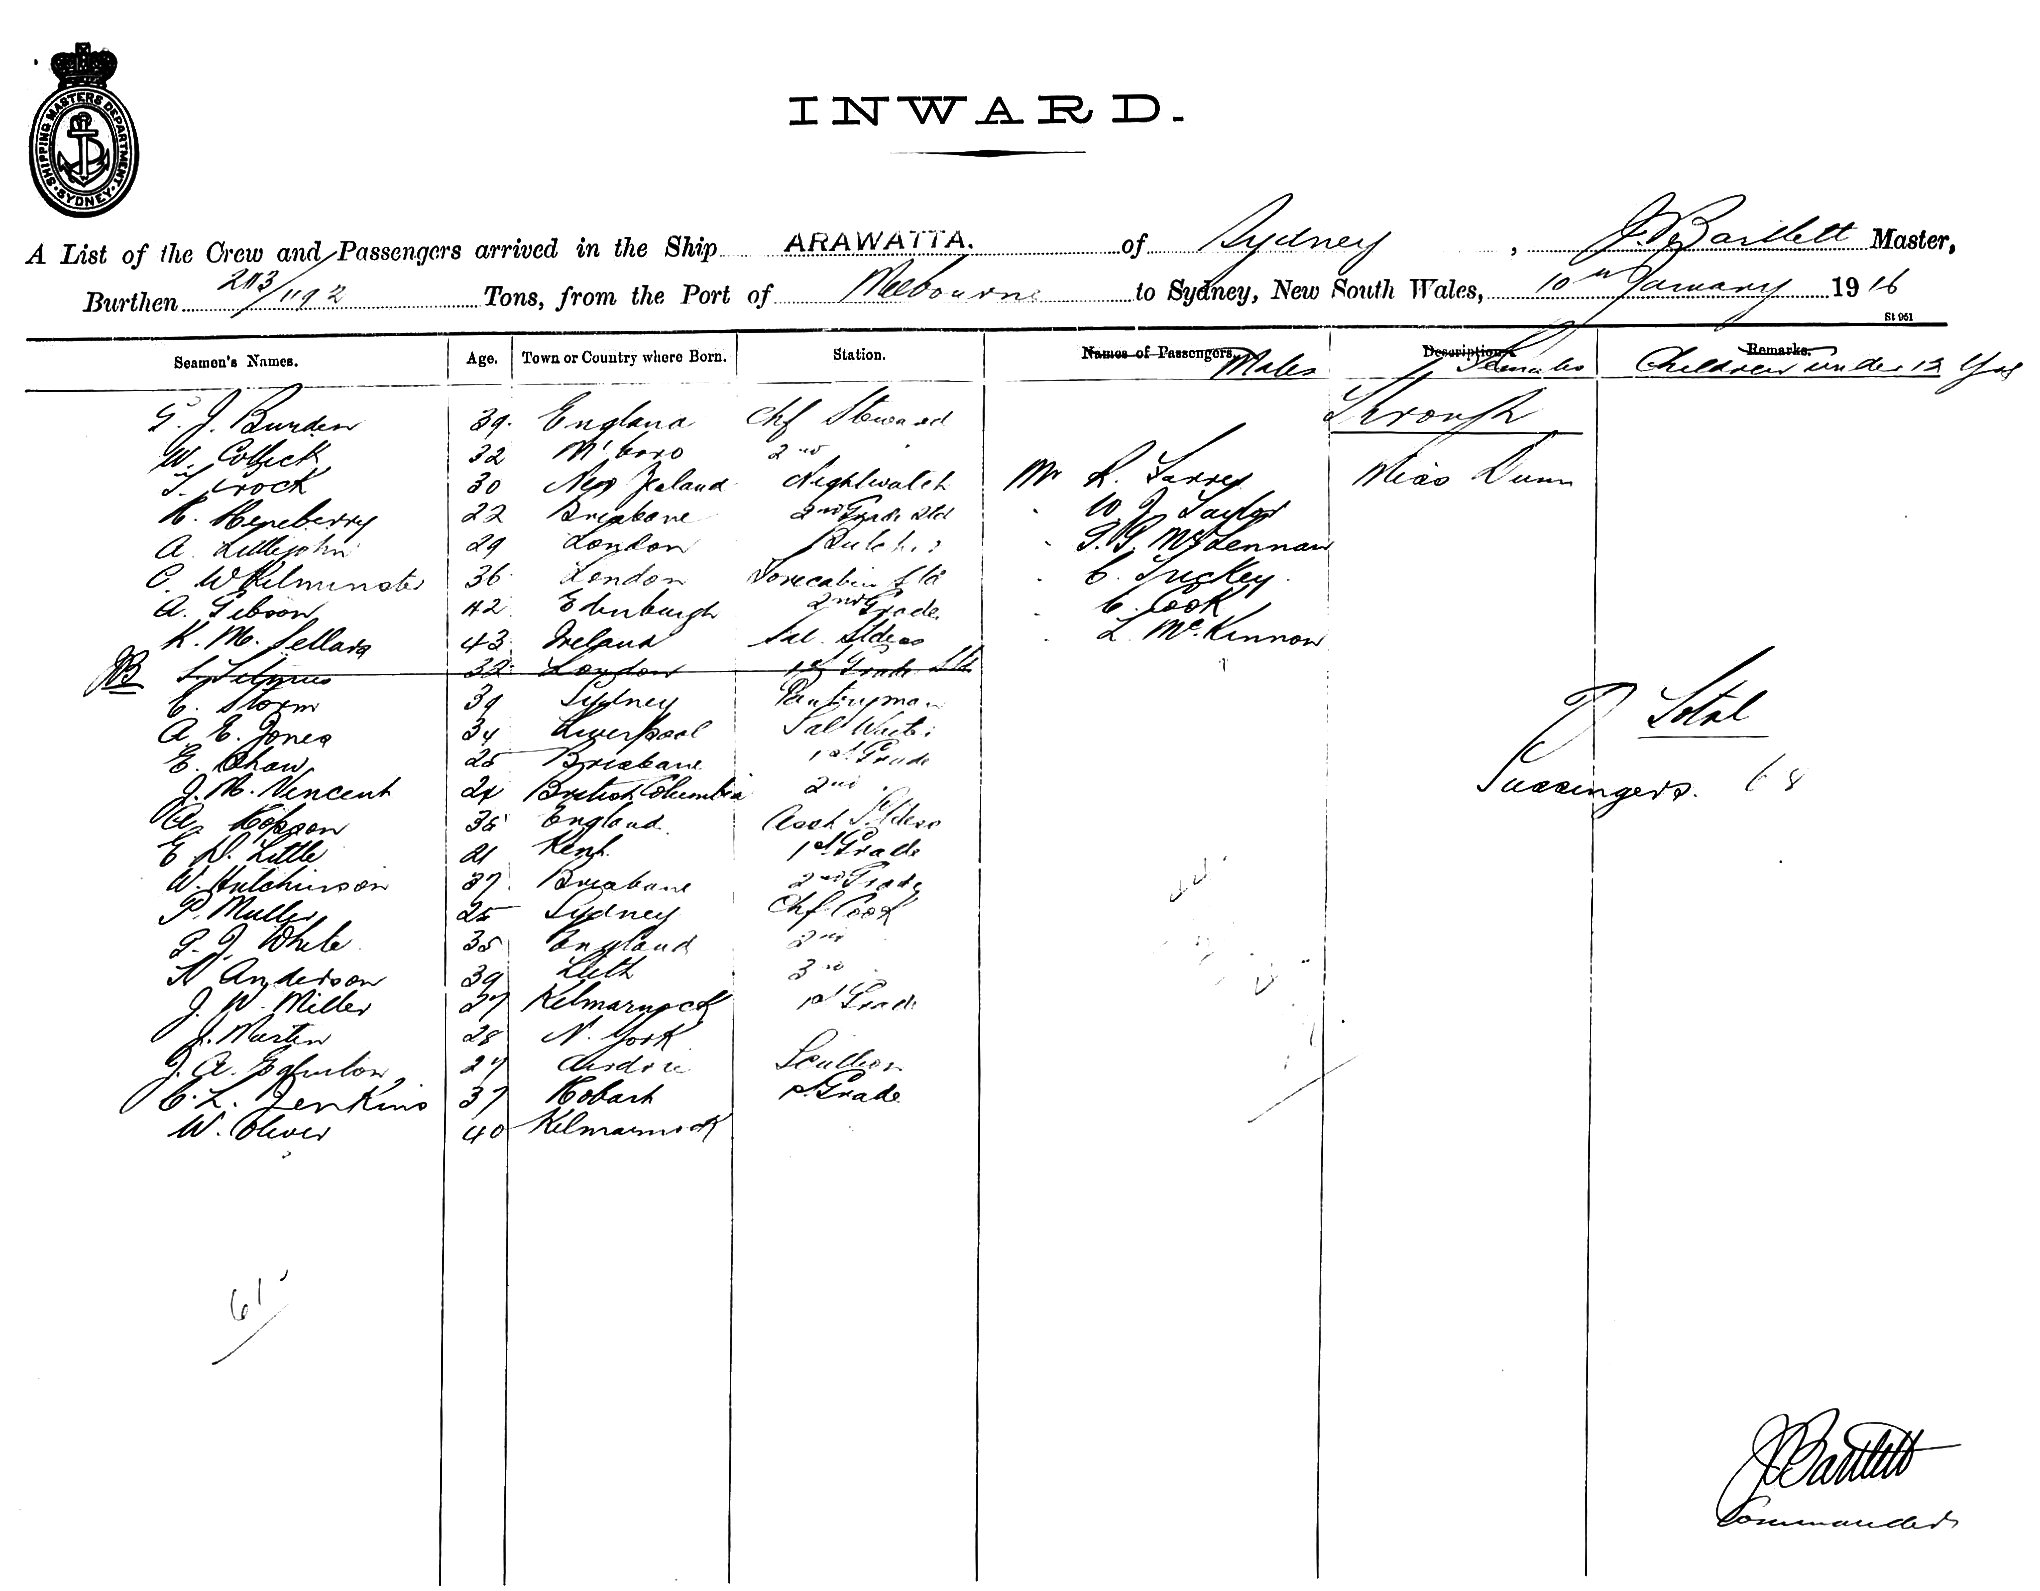 SHIPPING MASTERS DEPARTMENT. SYDNEY
INWARD.
A List of the Crew and Passengers arrived in the Ship ARAWATTA. of Sydney, J. Bartlett Master,
Burthen 2113/1192 Tons, from the Port of Melbourne to Sydney, New South Wales, 10th January 1916
St 951
Seamen's Names. Age. Town or Country where Born. Station. Names of Passengers. Males Description. Females Remarks. Children under 12 Yrs
G. J. Burden 39. England Chf Steward Through
W. Collick 32 M'boro 2nd
T. Crock 30 New Zealand Nightwatch Mr R. Miss Dunn
R. Heneberry 22 Brisbane 2nd Grade Std " W J Taylor
A. Littlejohn 29 London Butcher " McLennan
C. W Kilminster 36 London Forecabin Std " C. Tuckey.
A. Gibson 42 Edinburgh 2nd Grade " C. Cook
K. M. Sellars 43 Ireland Sal. Stdess " L. McKinnon
JB 32 London 1st Grade Std
C. Storm 39 Sydney Pantryman
Total
A. E. Jones 34 Liverpool Sal Waiter
E. Shaw 25 Brisbane 1st Grade
J. M. Vincent 24 British Columbia 2nd Passengers. 68
Hopson 38 England Asst Stdess
E D. Little 21 Kent 1st Grade
W. Hutchinson 37 Brisbane 2nd Grade
P. Muller 25 Sydney Chf Cook
J. White 35 England 2nd
N Anderson 39 Leith 3rd
J. W. Miller 27 Kilmarnock 1st Grade
J. Martin 28 N. York
J. A. 27 Airdrie Scullion
C. L. Jenkins 37 Hobart 1st Grade
W. Oliver 40 Kilmarnock
61
J Bartlett
Commander